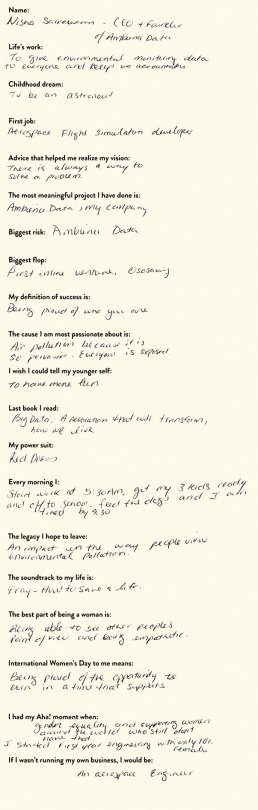 Name:
Nisha Sarveswaran - CEO + Founder
of Ambience Data
Life's work:
To give environmental monitoring data
to everyone and keep us accountable
Childhood dream:
To be an astronaut.
First job:
Aerospace Flight Simulation developer
Advice that helped me realize my vision:
There is always a way to
solve a problem
The most meaningful project I have done is:
Ambience Data, my company
Biggest risk: Ambience Data
Biggest flop:
First online venture,
My definition of success is:
Being proud of who you are
The cause I am most passionate about is:
Air pollution because it is
so pervasive. Everyone is exposed.
I wish I could tell my younger self:
To have more fun
Last book I read:
Big Data, A revolution that will transform,
how we live
My power suit:
Red Dress
Every morning I:
Start work at 5:30am, get my 3 kids ready
and off to school, feed the dogs and I am
tired by 9:30
The legacy I hope to leave:
An impact on the way people view
environmental pollution.
The soundtrack to my life is:
Fray - How to save a life.
The best part of being a woman is:
Being able to see other people's
point of view and being empathetic.
International Women's Day to me means:
Being proud of the opportunity to be
born in a time that supports
gender equality and supporting women
around the world who still don't
have that.
I had my Aha! moment when:
I started first year engineering with only 18%
females
If I wasn't running my own business, I would be:
An aerospace Engineer